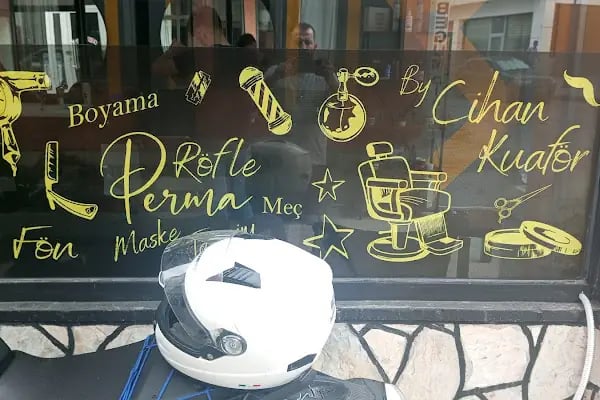 Boyama
Röfle
Perma Meç
Fön Maske
By Cihan
Kuaför